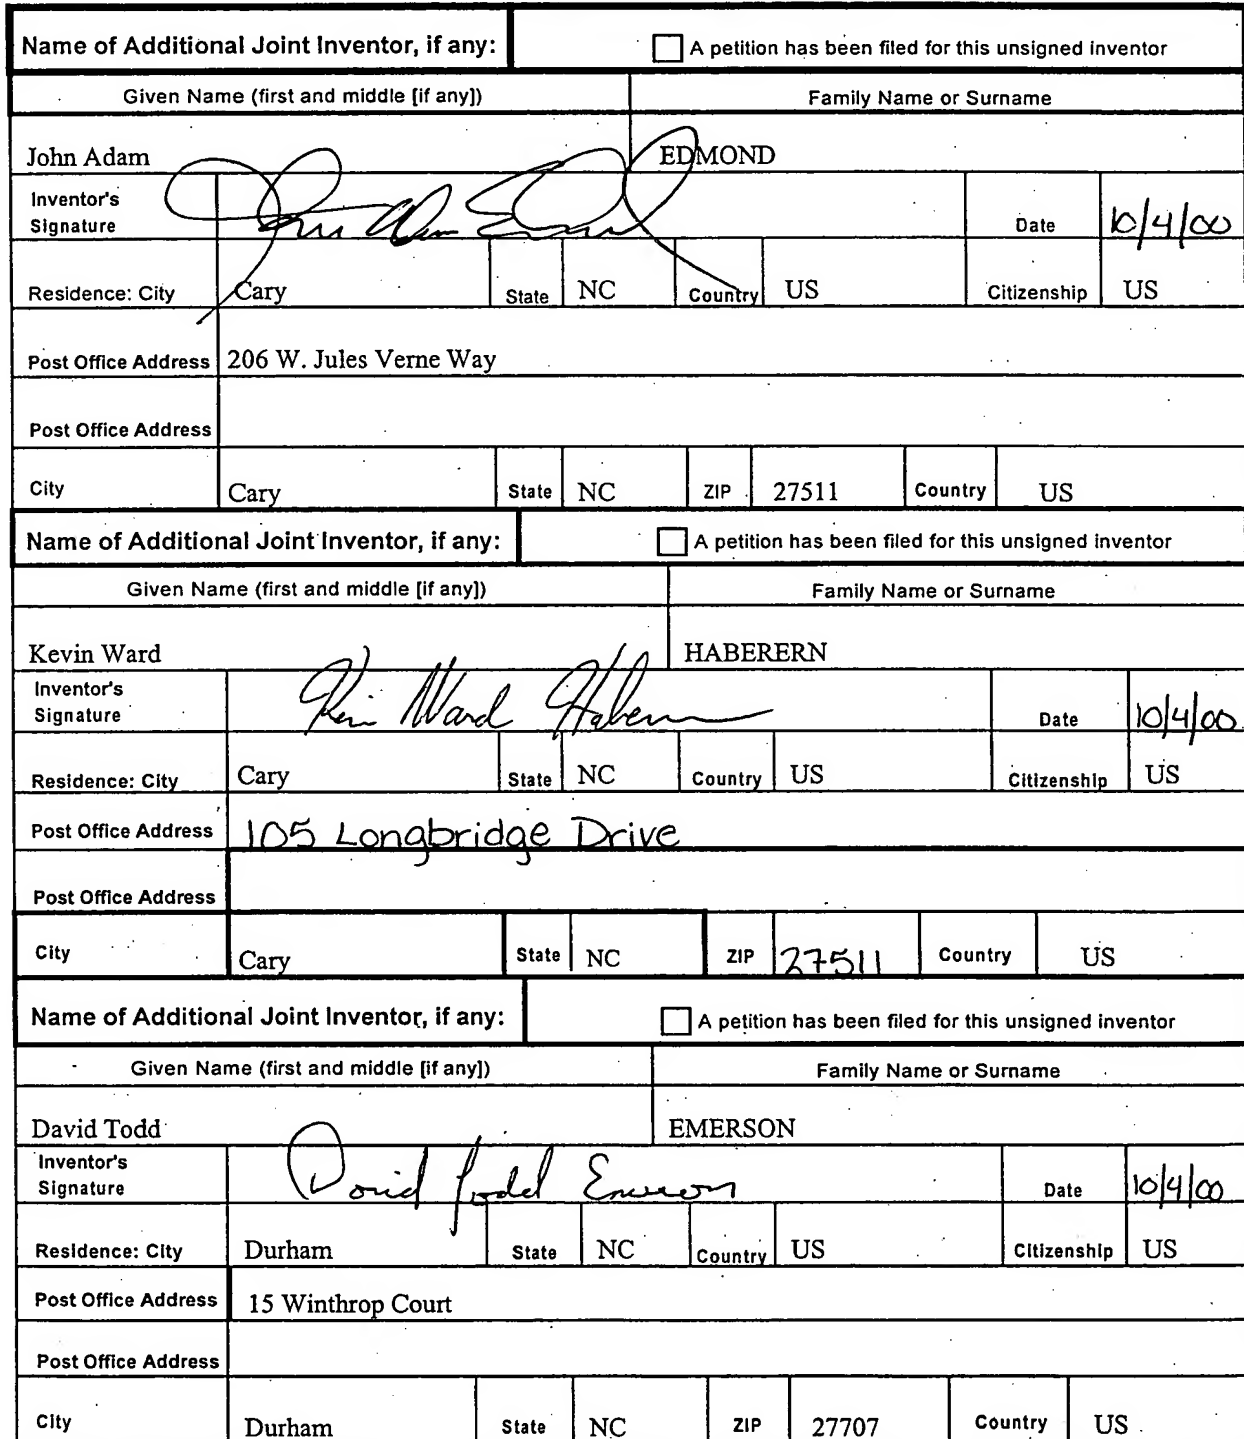 Name of Additional Joint Inventor, if any: A petition has been filed for this unsigned inventor
Given Name (first and middle [if any]) Family Name or Surname
John Adam EDMOND
Inventor's Signature John Adam Edmond Date 10/4/00
Residence: City Cary State NC Country US Citizenship US
Post Office Address 206 W. Jules Verne Way
Post Office Address
City Cary State NC ZIP 27511 Country US
Name of Additional Joint Inventor, if any: A petition has been filed for this unsigned inventor
Given Name (first and middle [if any]) Family Name or Surname
Kevin Ward HABERERN
Inventor's Signature Kevin Ward Haberern Date 10/4/00
Residence: City Cary State NC Country US Citizenship US
Post Office Address 105 Longbridge Drive
Post Office Address
City Cary State NC ZIP 27511 Country US
Name of Additional Joint Inventor, if any: A petition has been filed for this unsigned inventor
Given Name (first and middle [if any]) Family Name or Surname
David Todd EMERSON
Inventor's Signature David Todd Emerson Date 10/4/00
Residence: City Durham State NC Country US Citizenship US
Post Office Address 15 Winthrop Court
Post Office Address
City Durham State NC ZIP 27707 Country US